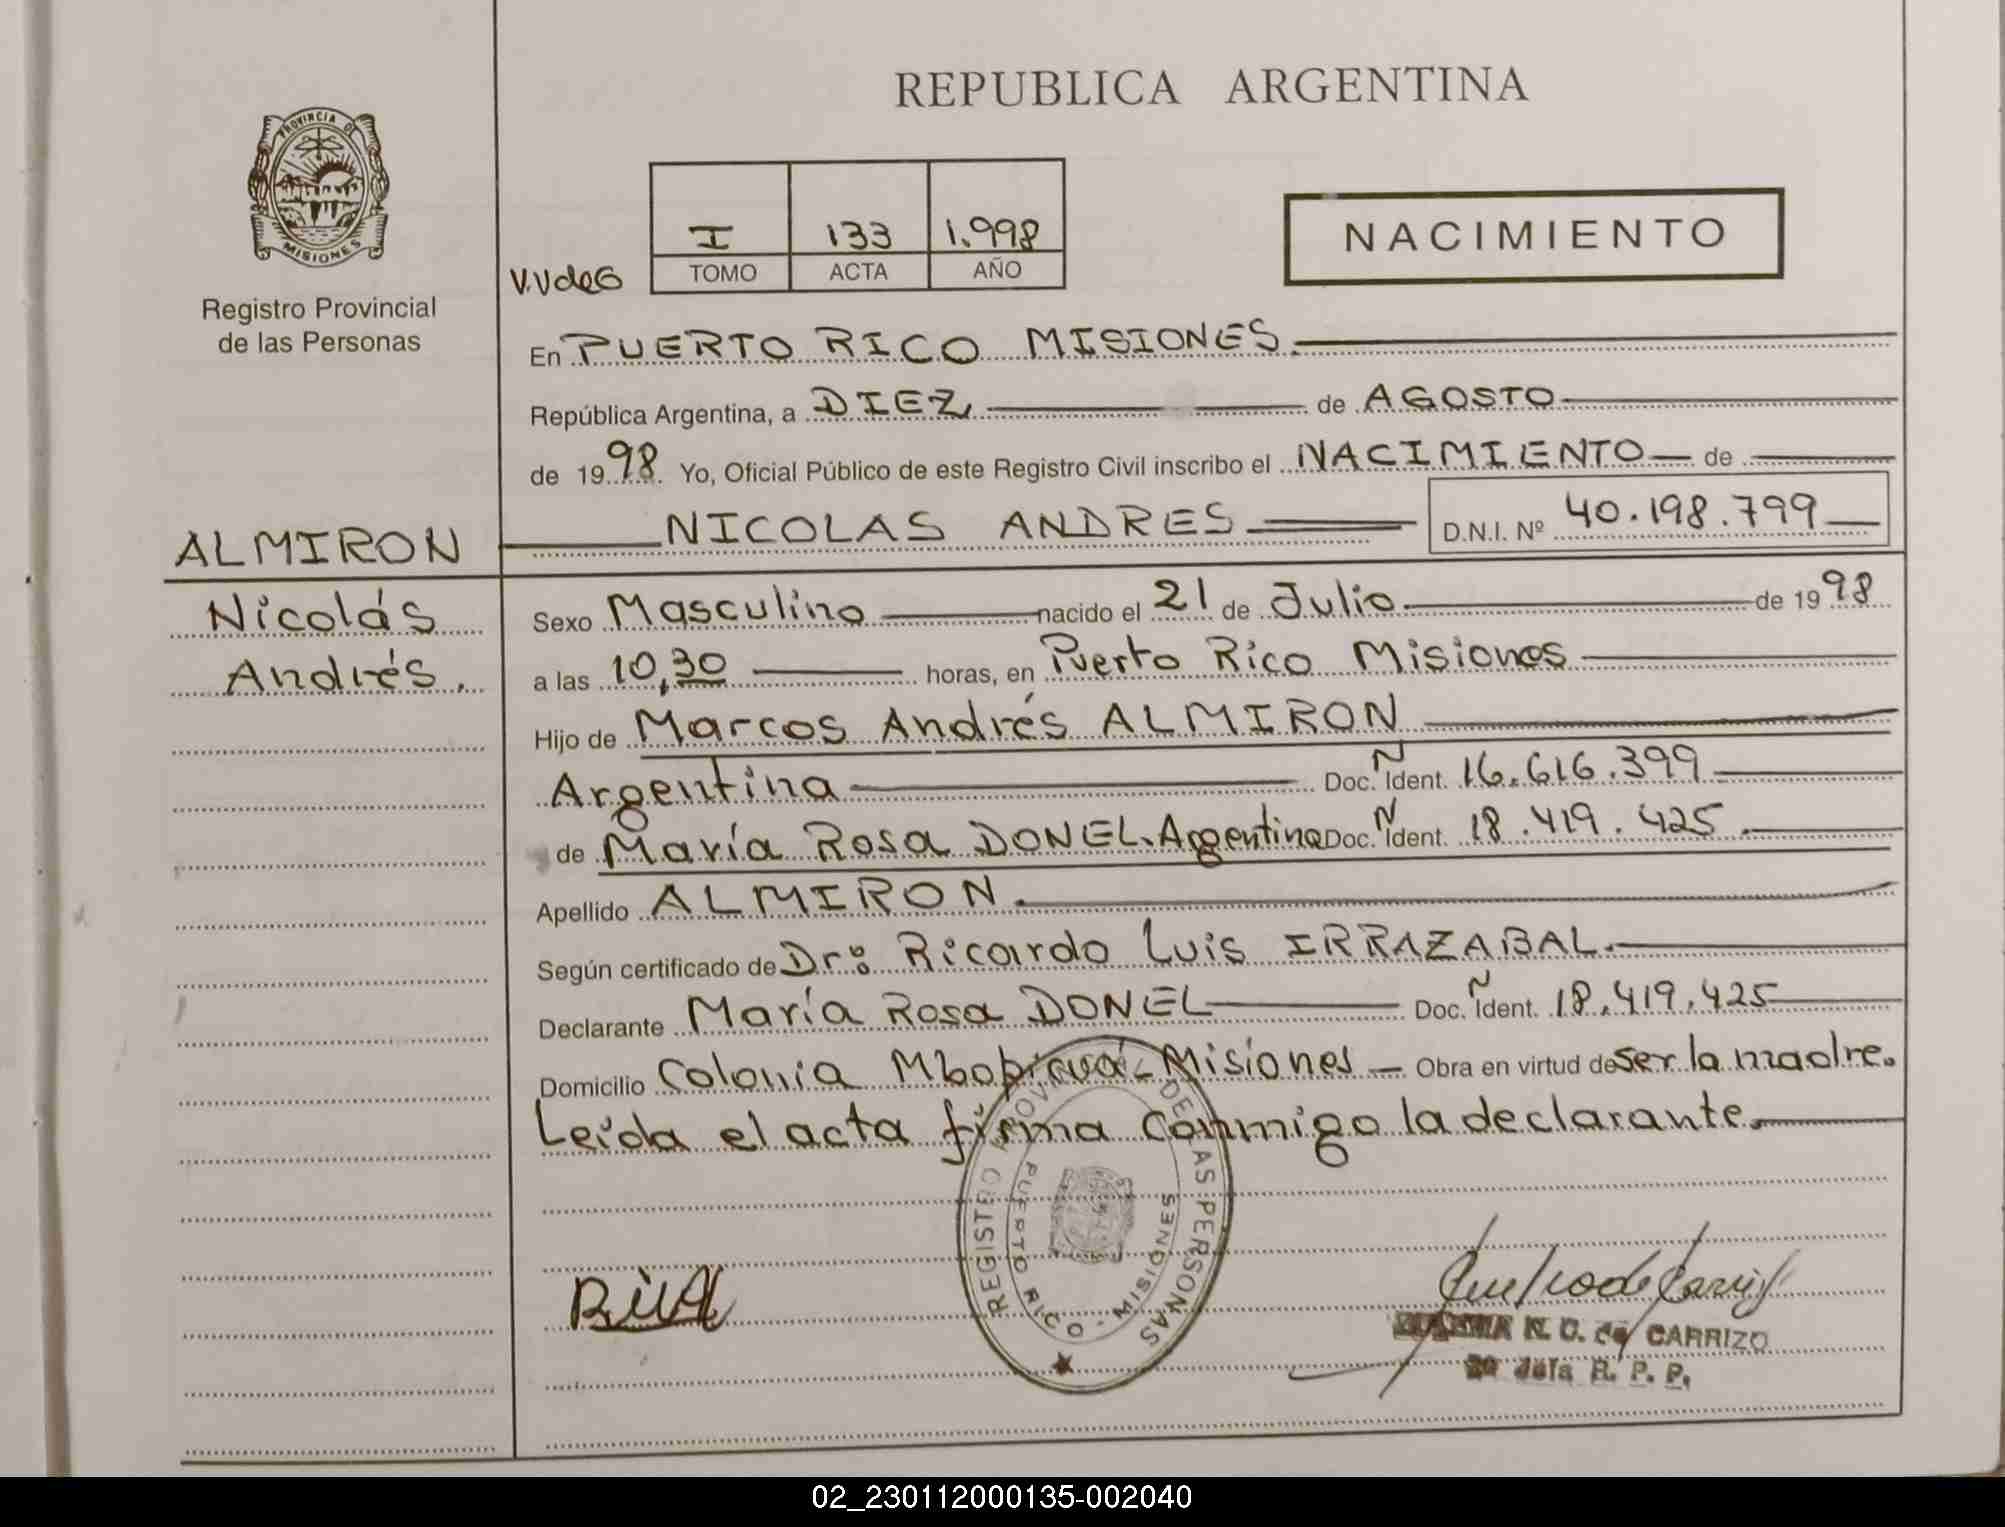 REPUBLICA ARGENTINA
PROVINCIA DE
MISIONES
Registro Provincial
de las Personas
I 133 1.998
TOMO ACTA AÑO
V.V de G
NACIMIENTO
En PUERTO RICO MISIONES.
República Argentina, a DIEZ de AGOSTO
de 1998 Yo, Oficial Público de este Registro Civil inscribo el NACIMIENTO de
ALMIRON NICOLAS ANDRES D.N.I. Nº 40.198.799
Nicolás
Andrés.
Sexo Masculino nacido el 21 de Julio de 1998
a las 10,30 horas, en Puerto Rico Misiones
Hijo de Marcos Andrés ALMIRON
Argentina Doc. Ñ Ident. 16.616.399
de María Rosa DONEL. Argentina Doc. Ñ Ident. 18.419.425.
Apellido ALMIRON.
Según certificado de Dr: Ricardo Luis IRRAZABAL.
Declarante María Rosa DONEL Doc. Ñ Ident. 18.419.425
Domicilio Colonia Mbopicuá - Misiones Obra en virtud de ser la madre.
Leída el acta firma conmigo la declarante.
REGISTRO PROVINCIAL DE LAS PERSONAS
PUERTO RICO - MISIONES
N. C. de CARRIZO
Jefa R. P. P.
02_230112000135-002040